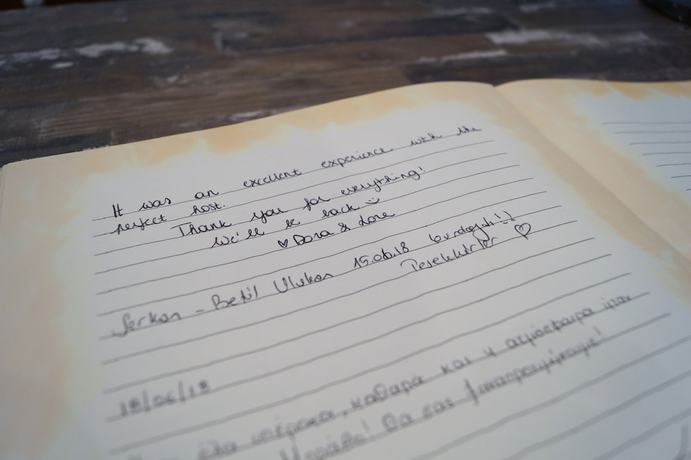 It was an excellent experience with the
perfect host.
Thank you for everything!
We'll be back
♡ Dora & Lore
Serkan - Betül Ulukan 15.06.18 burdaydı!!
Teşekkürler ♡
18/06/18
υπέροχα, καθαρά και η ατμόσφαιρα
Μπράβο! Θα σας ξαναπροτιμήσουμε!